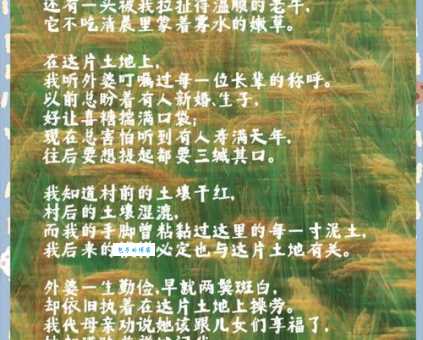 还有一头被我拉扯得温顺的老牛，
它不吃清晨里蒙着雾水的嫩草。
在这片土地上，
我听外婆叮嘱过每一位长辈的称呼。
以前总盼着有人新婚、生子，
好让喜糖揣满口袋；
现在总害怕听到有人寿满天年，
往后要想提起都要三缄其口。
我知道村前的土壤干红，
村后的土壤湿漉，
而我的手脚曾粘黏过这里的每一寸泥土，
我后来的 必定也与这片土地有关。
外婆一生勤俭,早就两鬓斑白，
却依旧执着在这片土地上操劳。
我代母亲劝说她该跟儿女们享福了，